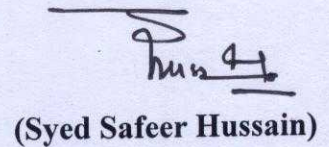 (Syed Safeer Hussain)